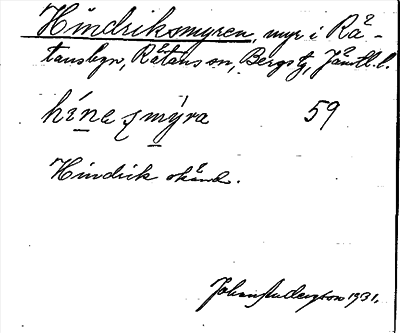 Hindriksmyren, myr i Rä-
tansbyn, Rätans sn, Bergs tg, Jämtl. l.
hínesmýra 59
Hindrik okänd.
Johan Anderzson 1931.